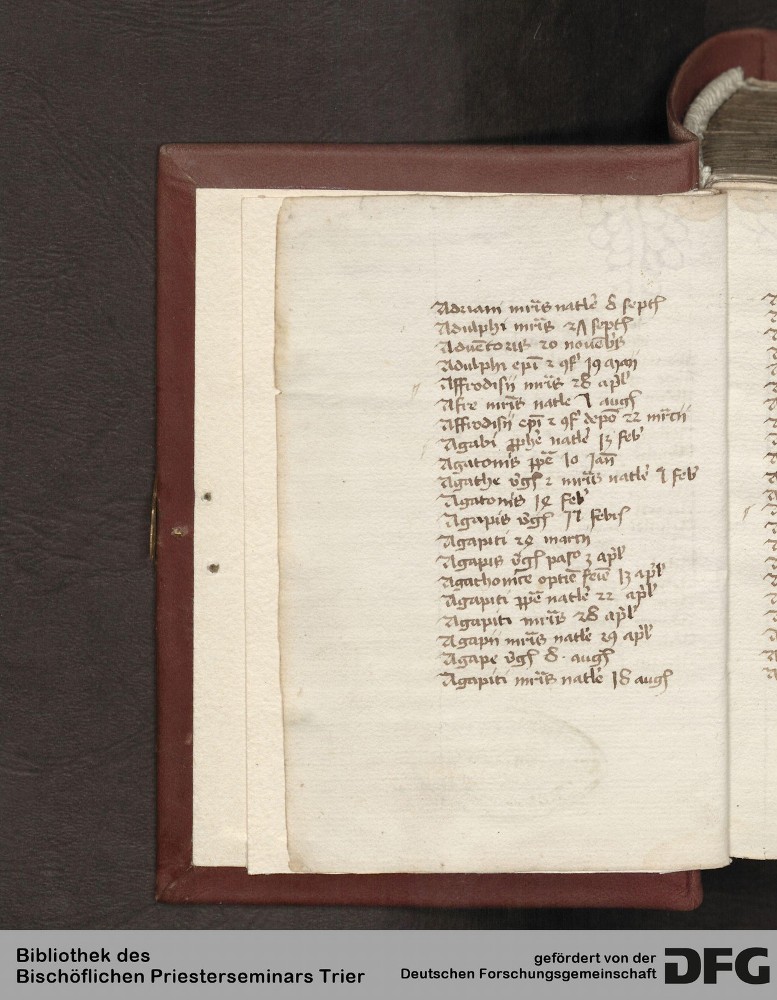 Adriani mr̄is natłe 8 septꝭ
Adulphi mr̄is 27 septꝭ
Aduētoris 20 nouēbꝭ
Adulphi epī ⁊ ꝯf 19 maii
Affrodisii mr̄is 28 apł
Afre mr̄is natłe 7 augꝭ
Affrodisii epī ⁊ ꝯf depō 22 mr̄cii
Agabi ꝓphē natłe 13 feb
Agatonis ꝑpē 10 Jan̄
Agathe v̄gꝭ ⁊ mr̄is natłe feb
Agatonis 14 feb
Agapis v̄gꝭ febꝭ
Agapiti 24 marcii
Agapis v̄gꝭ paso 3 apł
Agathonice 13 apł
Agapiti ꝑpē natłe 22 apł
Agapiti mr̄is 28 apł
Agapii mr̄is natłe 29 apł
Agape v̄gꝭ 8 · augꝭ
Agapiti mr̄is natłe 18 augꝭ
Bibliothek des
Bischöflichen Priesterseminars Trier
gefördert von der
Deutschen Forschungsgemeinschaft
DFG